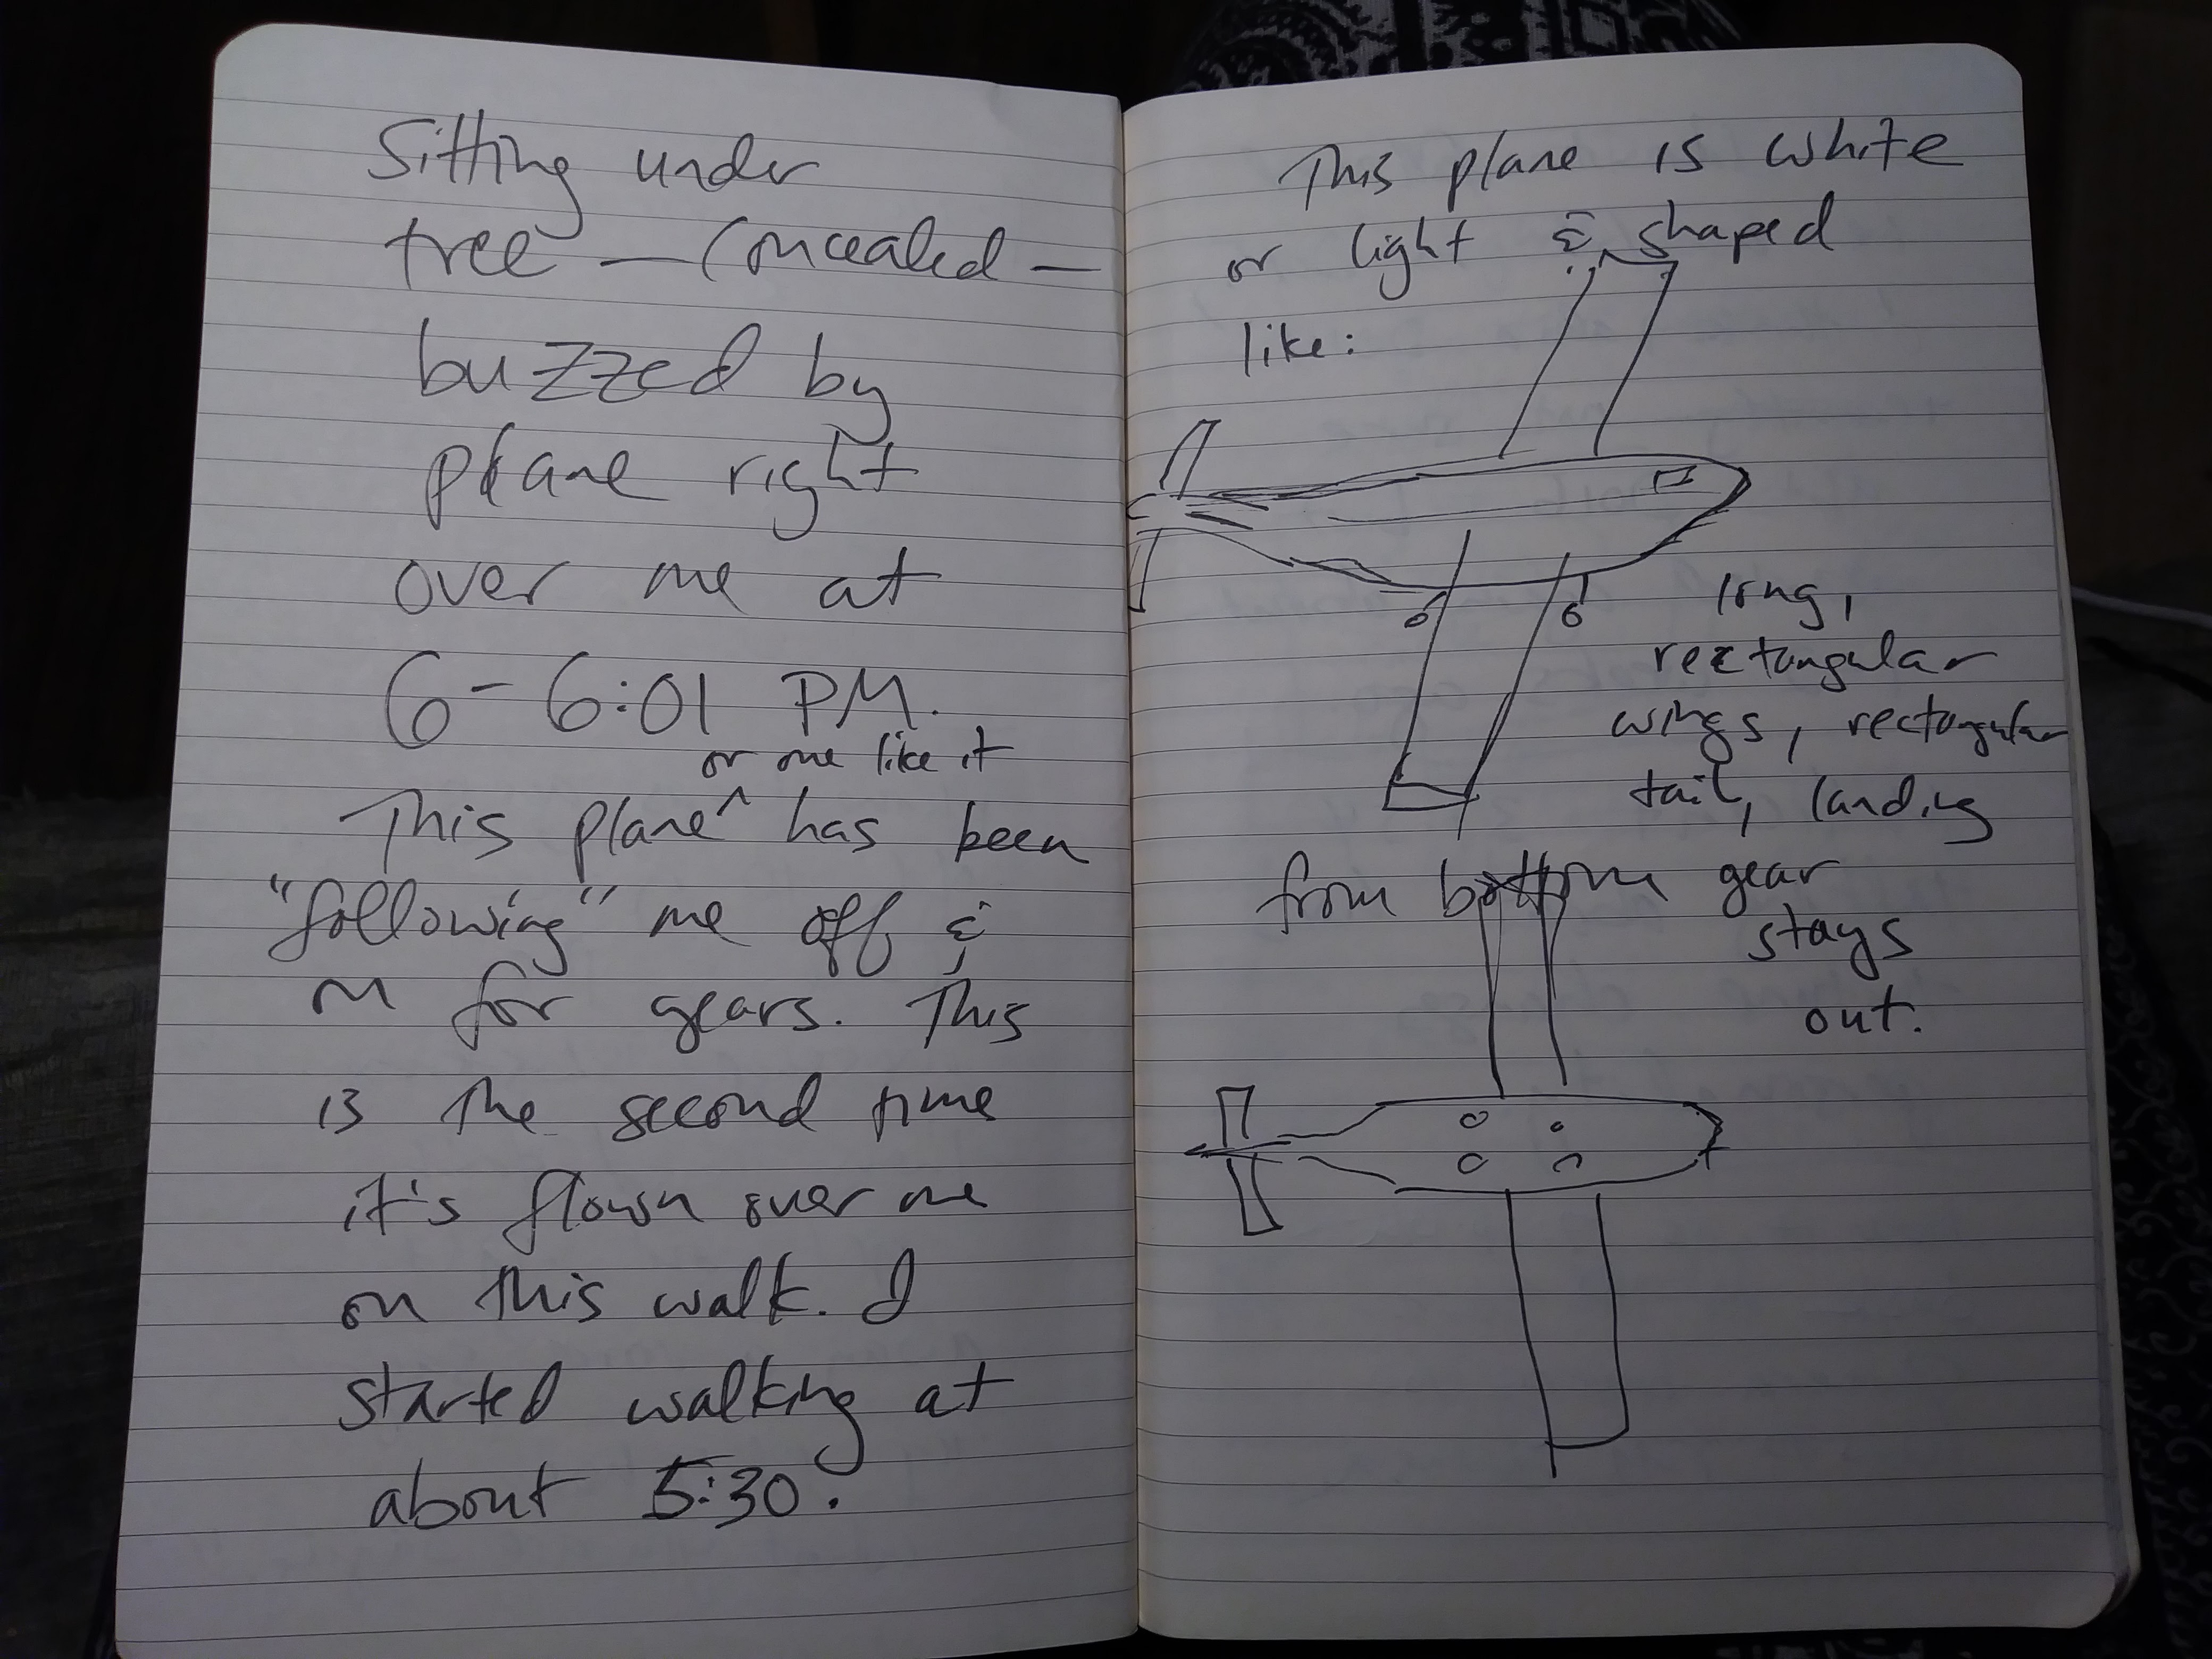 Sitting under
tree — Concealed —
buzzed by
plane right
over me at
6 - 6:01 PM.
or one like it
This plane ^ has been
"following" me off &
on for years. This
is the second time
it's flown over me
on this walk. I
started walking at
about 5:30.
This plane is white
or light & shaped
like:
long,
rectangular
wings, rectangular
tail, landing
gear
stays
out.
from bottom